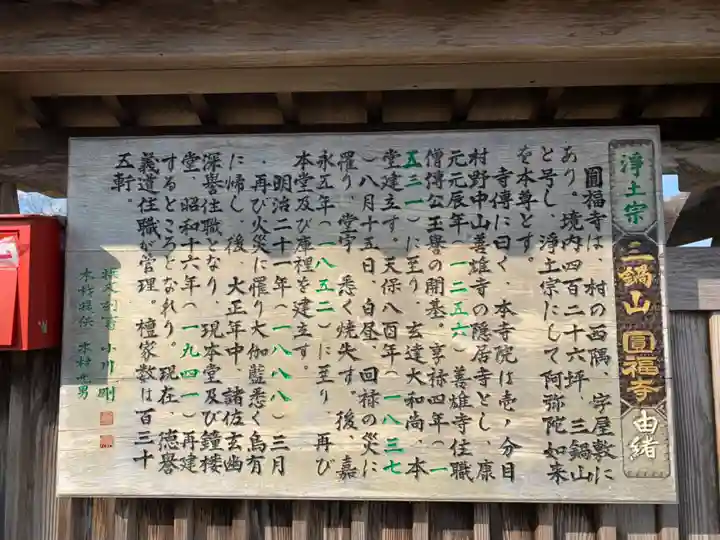 浄土宗 三鍋山 圓福寺 由緒
圓福寺は、村の西隅、字屋敷に
あり、境内四百二十六坪、三鍋山
と号し、浄土宗にして阿弥陀如来
を本尊とす。
寺傳に曰く、本寺院は壱ノ分目
村野中山善雄寺の隠居寺とし、康
元元辰年(一二五六)善雄寺住職
僧傳公王誉の開基。享禄四年(一
五三一)に至り玄達大和尚、本
堂建立す。天保八百年(一八三七
)八月十五日、白昼、回禄の災に
罹り、堂宇、悉く焼失す。後、嘉
永五年(一八五二)に至り、再び
本堂及び庫裡を建立す。
明治二十一年(一八八八)三月
、再び火災に罹り大伽藍悉く烏有
に帰し、後、大正年中、諸佐玄幽
深誉住職となり、現本堂及び鐘楼
堂、昭和十六年(一九四一)再建
するところとなれり。現在、徳誉
義道住職が管理。檀家数は百三十
五軒。
小川 剛
木村 男